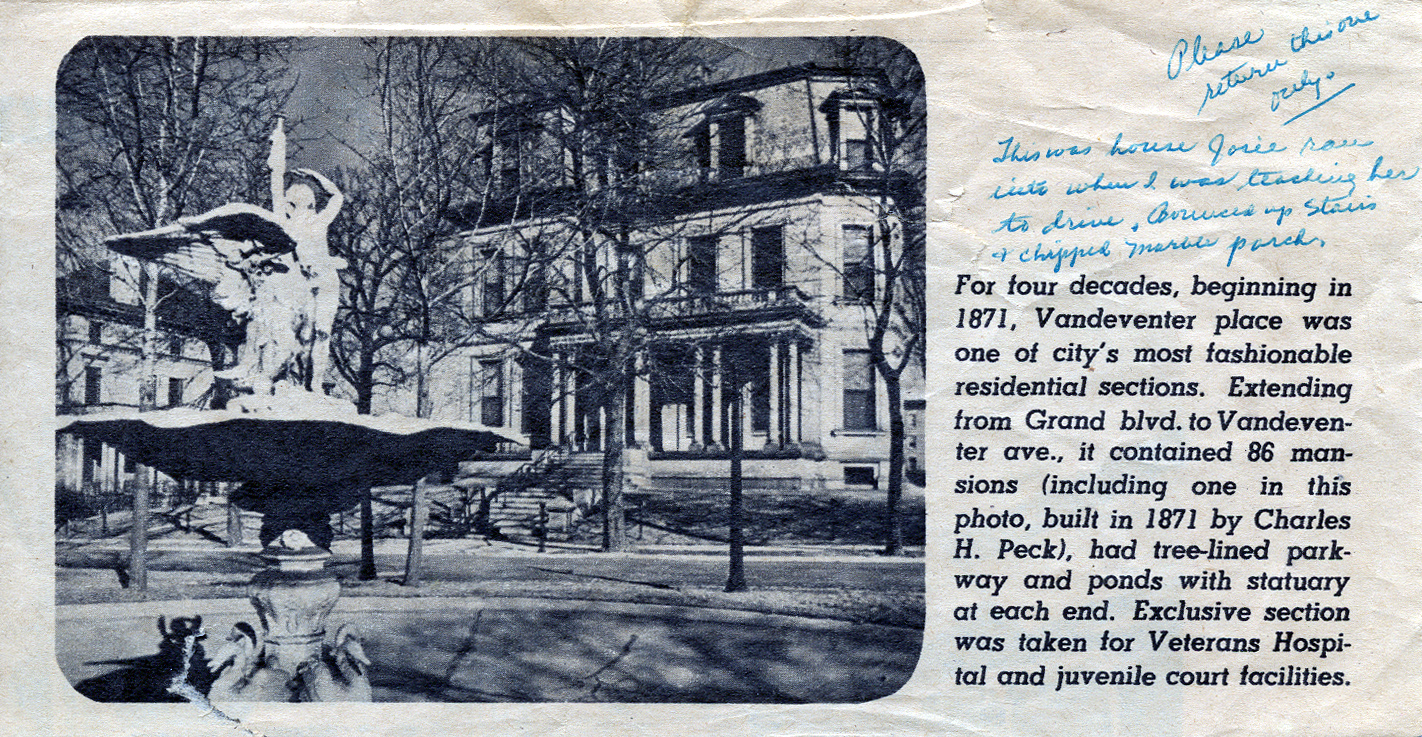 Please
return this one
only.
This was house Josie ran
into when I was teaching her
to drive, Bounced up Stairs
& chipped Marble porch.
For four decades, beginning in
1871, Vandeventer place was
one of city's most fashionable
residential sections. Extending
from Grand blvd. to Vandeven-
ter ave., it contained 86 man-
sions (including one in this
photo, built in 1871 by Charles
H. Peck), had tree-lined park-
way and ponds with statuary
at each end. Exclusive section
was taken for Veterans Hospi-
tal and juvenile court facilities.